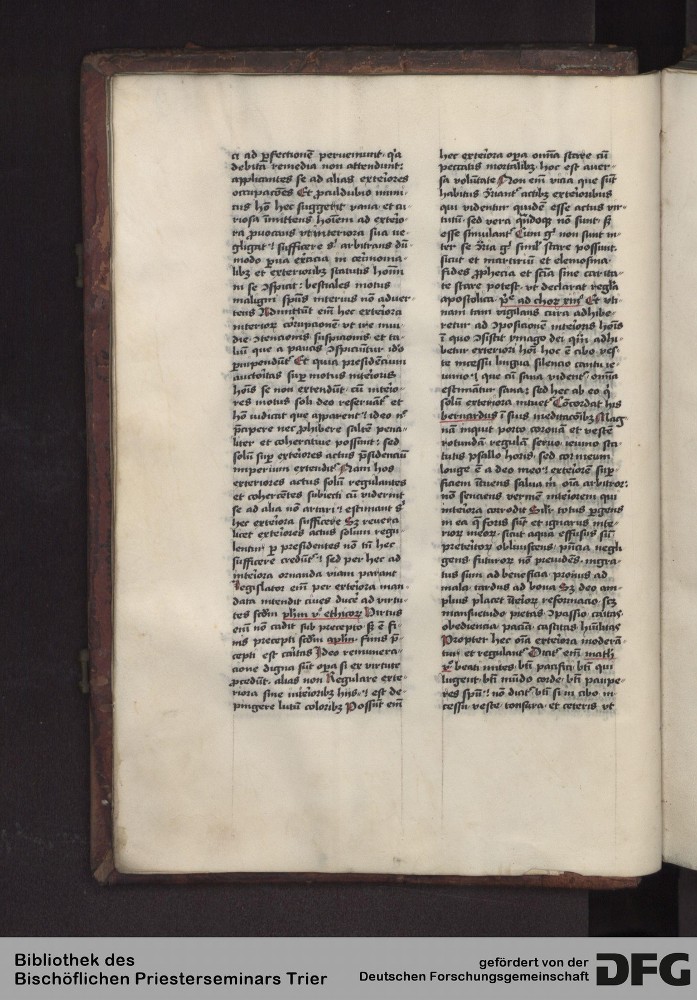 ci ad ꝑfectionē perveniunt· q̄a
debita remedia non attendunt:
applicantes se ad alias exteriores
occupacōes Et ꝓculdubio inimi-
cus hoīs hec suggerit vana et cu-
riosa īmittens hoīem ad exteio-
ra ꝓvocans vt interiora sua ne-
gligat· ⁊ sufficere
modo
libꝫ et exterioribꝫ statutis homī
ni se ꝯspicit: bestiales motus
maligni spūs interius nō adver-
tens Admittūt em̄ hec exteriora
interior corrupcione
die ꝯtencionis suspicionis et ta-
liū que a paucis ꝯspiciūtur ido
ꝑmipendūt Et quia presidēcium
auctoritas suꝑ motus interioris
hoīs se non extendūt· cū interio-
res motus soli deo reservāt et
hō iudicat que apparent ⁊ ideo nō
p̄cipere nec ꝓhibere saltē pena-
liter et cohercitive possunt: sed
solū suꝑ exteriores actus p̄sidenciū
imperium extendit Nam hos
exteriores actus solū regulantes
et cohercētes subiecti cū viderint
se ad alia nō artari ⁊ estimant
hec exteriora sufficere Sꝫ revera
licet exteriores actus solum regu
lentur ꝑ presidentes nō tn̄ hec
sufficere credūt ⁊ sed per hec ad
interiora ornanda viam parant
Legislator em̄ per exteriora man-
data intendit cives ducē ad virtu-
tes scdm̄ phm v° ethicoꝝ Virtus
em̄ nō cadit sub precepto sꝫ ē fi-
nis precepti scdm̄ aplm̄· finis p̄-
cepti est caritas Ideo remunera-
cione digna sūt opa si ex virtute
ꝓcedūt· alias non Regulare exte-
riora sine interioribꝫ hīs· ⁊ est de-
pingere lutū coloribꝫ Possūt em̄
hec exteriora oꝑa omīa stare cū
peccatis mortalibꝫ hoc est aver-
sa volūtate Non em̄ vicia que sūt
habitus ꝯtrariant actibꝫ exterioribus
qui videntur quidē esse actus vir-
tutū· sed vera quādoqꝫ nō sunt· sꝫ
esse simulant
ter se ꝯtraria gͦ simul stare possunt·
sicut et martirium et elemosina
fides ꝓphecia et sciā sine carita-
te stare potest· vt declarat regl̄a
apostolica· p̄e ad chor xiij° Et vti-
nam tam vigilans cura adhibe-
retur ad ꝯposicionē interioris hoīs
ī quo ꝯsistit ymago dei q̄m adhi-
betur exteriori hoī hoc ē cibo ves-
te incessu lingua silencio cantu ie-
iunio· ⁊ que oīa sana vident· omīa
estimātur sana: sed hec ab eo q̄
solū exteriora intuet Cōcordat his
bernardus ī suis meditacōibꝫ Mag
nā inquit porto coronā et vestē
rotundā regulā servo ieiuno sta-
tutis psallo horis· sed cor meum
longe ē a deo meo· ⁊ exteriorē suꝑ-
ficiem ītuens salva m̄ oīa arbitror:
nō senciens vermē interiorem qui
interiora corrodit Silr totus ꝑgens
in ea q̄ foris sūt et ignarus inte-
rioꝝ meoꝝ· sicut aqua effusus sū
preteritoꝝ obliviscens· p̄ncia negli
gens futuroꝝ nō previdēs· ingra-
tus sum ad beneficia pronus ad
mala tardus ad bona Sꝫ deo am-
plius placet
mansuetudo pietas ꝯpassio caritas·
obediencia paciā castitas humilitas
Propter hec oīa exteriora moderā-
tur et regulant Dicit em̄ math
v° beati mites· bt̄i pacifici· bt̄i qui
lugent· bt̄i mūdo corde· bt̄i paupe-
res spū· ⁊ nō dicit bt̄i si in cibo in-
cessu veste tonsura et ceteris vt
Bibliothek des
Bischöflichen Priesterseminars Trier
gefördert von der
Deutschen Forschungsgemeinschaft
DFG